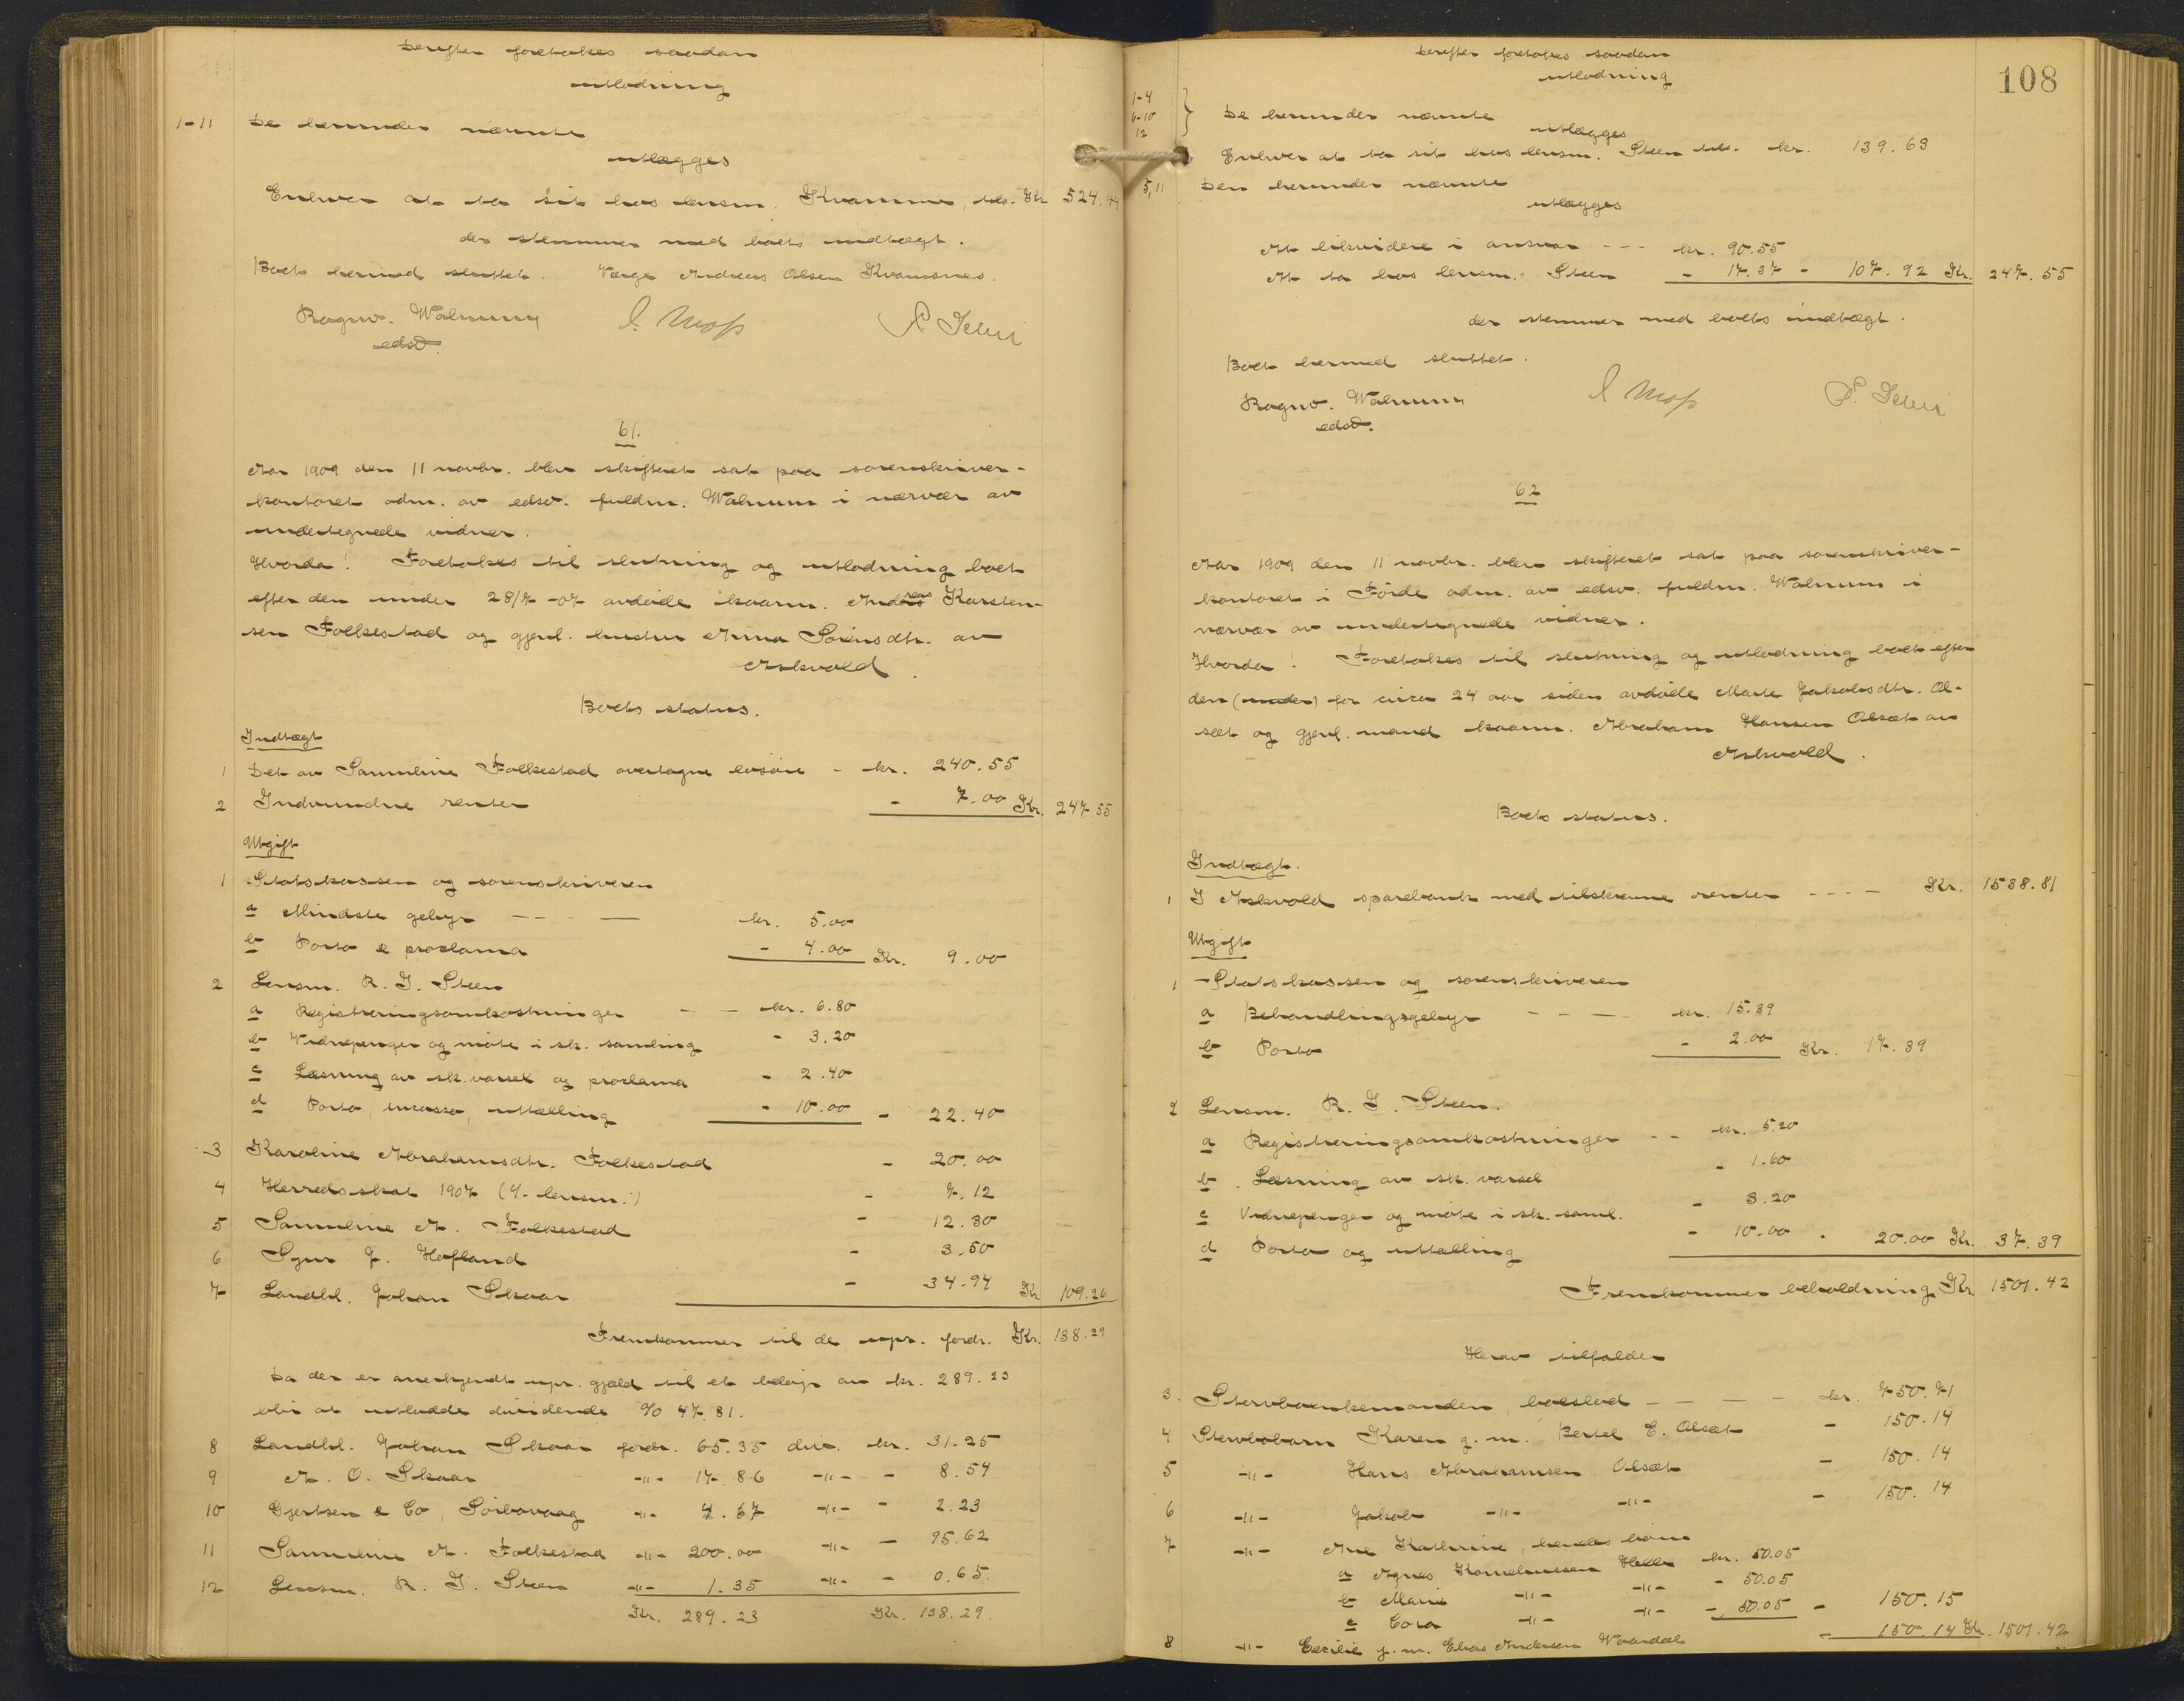 Derefter foretokes saadan
utlodning
1-11 De herunder nævnte
utlægges
Enhver at ta sit hos lensm. Kvamme, tils. Kr 524.44
der stemmer med boets indtægt.
Boet hermed sluttet. Værge Andreas Olsen Kvamsnes.
Ragnv. Walnum
edsv.
J. Moss
61.
Aar 1909 den 11 novbr. blev skifteret sat paa sorenskriver-
kontoret adm. av edsv. fuldm. Walnum i nærvær av
undertegnede vidner.
Hvorda! Foretokes til slutning og utlodning boet
efter den under 28/7-07 avdøde kaarm. Andreas Karsten-
sen Folkestad og gjenl. hustru Anna Sørensdtr. av
Askvold.
Boets status.
Indtægt
1 Det av Samuline Folkestad overtagne løsøre - kr. 240.55
2 Indvundne renter - 7.00 Kr. 247.55
Utgift
1 Statskassen og sorenskriveren
a Mindste gebyr - - - - kr. 5.00
b Porto & proclama - 4.00 Kr. 9.00
2 Lensm. R. J. Steen
a Registreringsomkostninger - - kr. 6.80
b Vidnepenger og møte i sk. samling - 3.20
c Læsning av sk. varsel og proclama - 2.40
d Porto, incasso, uttælling - 10.00 - 22.40
3 Karoline Abrahamsdtr. Folkestad - 20.00
4 Herredsskat 1907 (v. lensm.) - 7.12
5 Samuline A. Folkestad - 12.30
6 J. Hofland - 3.50
7 Landhl. Johan Skaar - 34.94 Kr 109.26
Fremkommer til de upr. fordr. Kr. 138.29
Da der er anerkjendt upr. gjæld til et beløp av kr. 289.23
blir at utlodde dividende % 47.81.
8 Landhl. Johan Skaar fordr. 65.35 div. kr. 31.25
9 A. O. Skaar -"- 17.86 -"- - 8.54
10 Gjertsen & Co, Sørbøvaag -"- 4.67 -"- - 2.23
11 Samuline A. Folkestad -"- 200.00 -"- - 95.62
12 Lensm. R. J. Steen -"- 1.35 -"- - 0.65.
Kr. 289.23 Kr. 138.29.
108
Derefter foretokes saadan
utlodning
1-4
6-10
12 } De herunder nævnte
utlægges
Enhver at ta sit hos lensm. Steen tils. kr. 139.63
5, 11 Den herunder nævnte
utlægges
At likvidere i ansvar - - - kr. 90.55
At ta hos lensm. Steen - 17.37 - 107.92 Kr. 247.55
der stemmer med boets indtægt.
Boet hermed sluttet.
Ragnv. Walnum
edsv.
J Moss
62
Aar 1909 den 11 novbr. blev skifteret sat paa sorenskriver-
kontoret i Førde adm. av edsv. fuldm. Walnum i
nærvær av undertegnede vidner.
Hvorda! Foretokes til slutning og utlodning boet efter
den (under) for circa 24 aar siden avdøde Marte Jakobsdtr. Ol-
sæt og gjenl. mand kaarm. Abraham Hansen Olsæt av
Askvold.
Boets status.
Indtægt.
1 I Askvold sparebank med tilskrevne renter - - - - Kr. 1538.81
Utgift
1 Statskassen og sorenskriveren
a Behandlingsgebyr - - - - kr. 15.39
b Porto - 2.00 Kr. 17.39
2 Lensm. R. J. Steen.
a Registreringsomkostninger - - kr. 5.20
b. Læsning av sk. varsel - 1.60
c Vidnepenger og møte i sk. saml. - 3.20
d Porto og uttælling - 10.00 - 20.00 Kr. 37.39
Fremkommer beholdning Kr 1501.42
Herav tilfalder
3. Stervboenkemanden, boeslod - - - kr. 750.71
4 Stervbobarn Karen g. m. Bertel E. Olsæt - 150.14
5 -"- Hans Abrahamsen Olsæt - 150.14
6 -"- Jakob -"- -"- - 150.14
7 -"- Ane Kathrine, hendes børn
a Agnes Korneliussen Helle kr. 50.05
b Marie -"- -"- - 50.05
c Cora -"- -"- - 50.05 - 150.15
8 -"- Cecilie g. m. Elias Andersen Waardal - 150.14 Kr. 1501.42